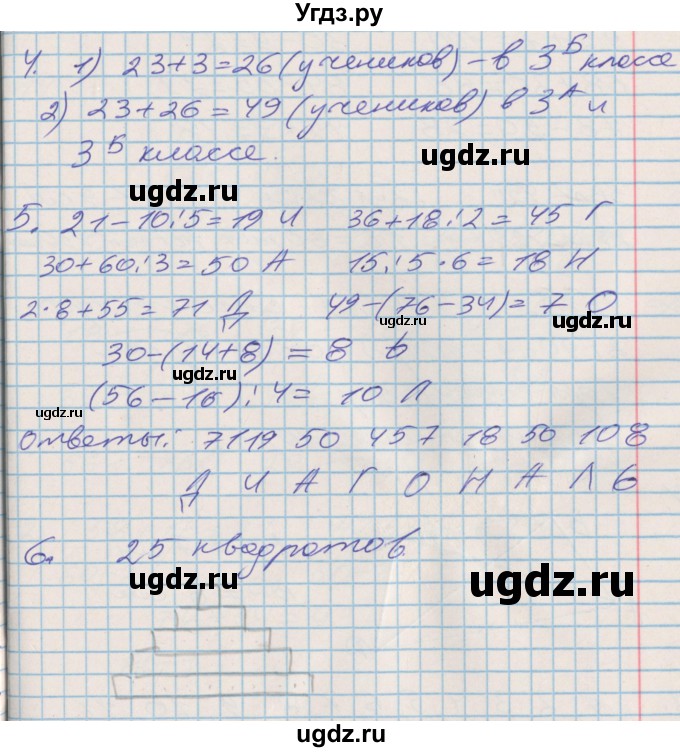 Угдз.ру
4. 1) 23+3=26 (учеников) – в 3Б классе
2) 23+26=49 (учеников) в 3А и
3Б классе.
ugdz.ru
ugdz.ru
5. 21-10:5=19 И 36+18:2=45 Г
30+60:3=50 А 15:5·6=18 Н
2·8+55=71 Д 49-(76-34)=7 О
ugdz.ru
ugdz.ru
30-(14+8)=8 Ь
ugdz.ru
(56-16):4=10 Л
ugdz.ru
ответы: 71 19 50 45 7 18 50 10 8
Д И А Г О Н А Л Ь
6. 25 квадратов.
ugdz.ru
ugdz.ru
ugdz.ru
ugdz.ru